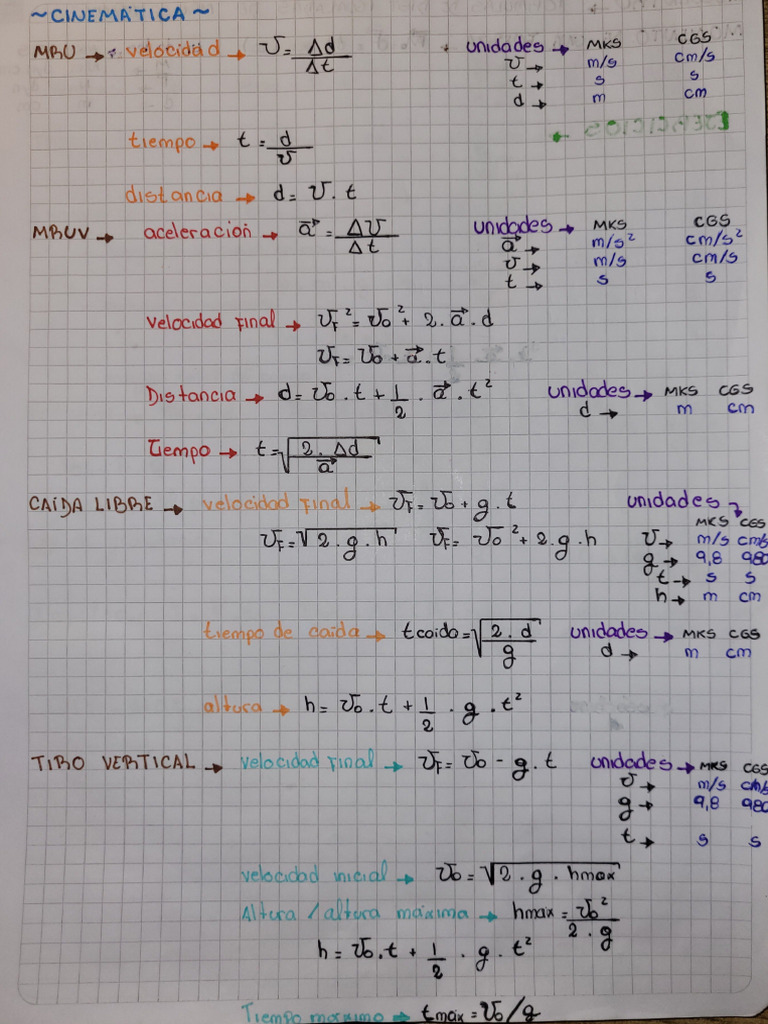 ~CINEMÁTICA~
MRU → velocidad → v = Δd/Δt unidades → MKS CGS
v → m/s cm/s
t → s s
d → m cm
tiempo → t = d/v
EJERCICIOS →
distancia → d = v . t
MRUV → aceleración → a⃗ = Δv/Δt unidades → MKS CGS
a⃗ → m/s² cm/s²
v → m/s cm/s
t → s s
velocidad Final → vF² = vo² + 2 . a⃗ . d
vF = vo + a⃗ . t
Distancia → d = vo . t + 1/2 . a⃗ . t² unidades → MKS CGS
d → m cm
Tiempo → t = √(2 . Δd / a⃗)
CAÍDA LIBRE → velocidad Final → vF = vo + g . t unidades →
MKS CGS
vF = √(2 . g . h) vF = vo² + 2 . g . h v → m/s cm/s
g → 9,8 980
t → s s
h → m cm
tiempo de caida → tcaida = √(2 . d / g) unidades → MKS CGS
d → m cm
altura → h = vo . t + 1/2 . g . t²
TIRO VERTICAL → velocidad Final → vF = vo - g . t unidades → MKS CGS
v → m/s cm/s
g → 9,8 980
t → s s
velocidad inicial → vo = √(2 . g . hmax)
Altura / altura máxima → hmax = vo² / 2 . g
h = vo . t + 1/2 . g . t²
Tiempo máximo → tmáx = vo/g